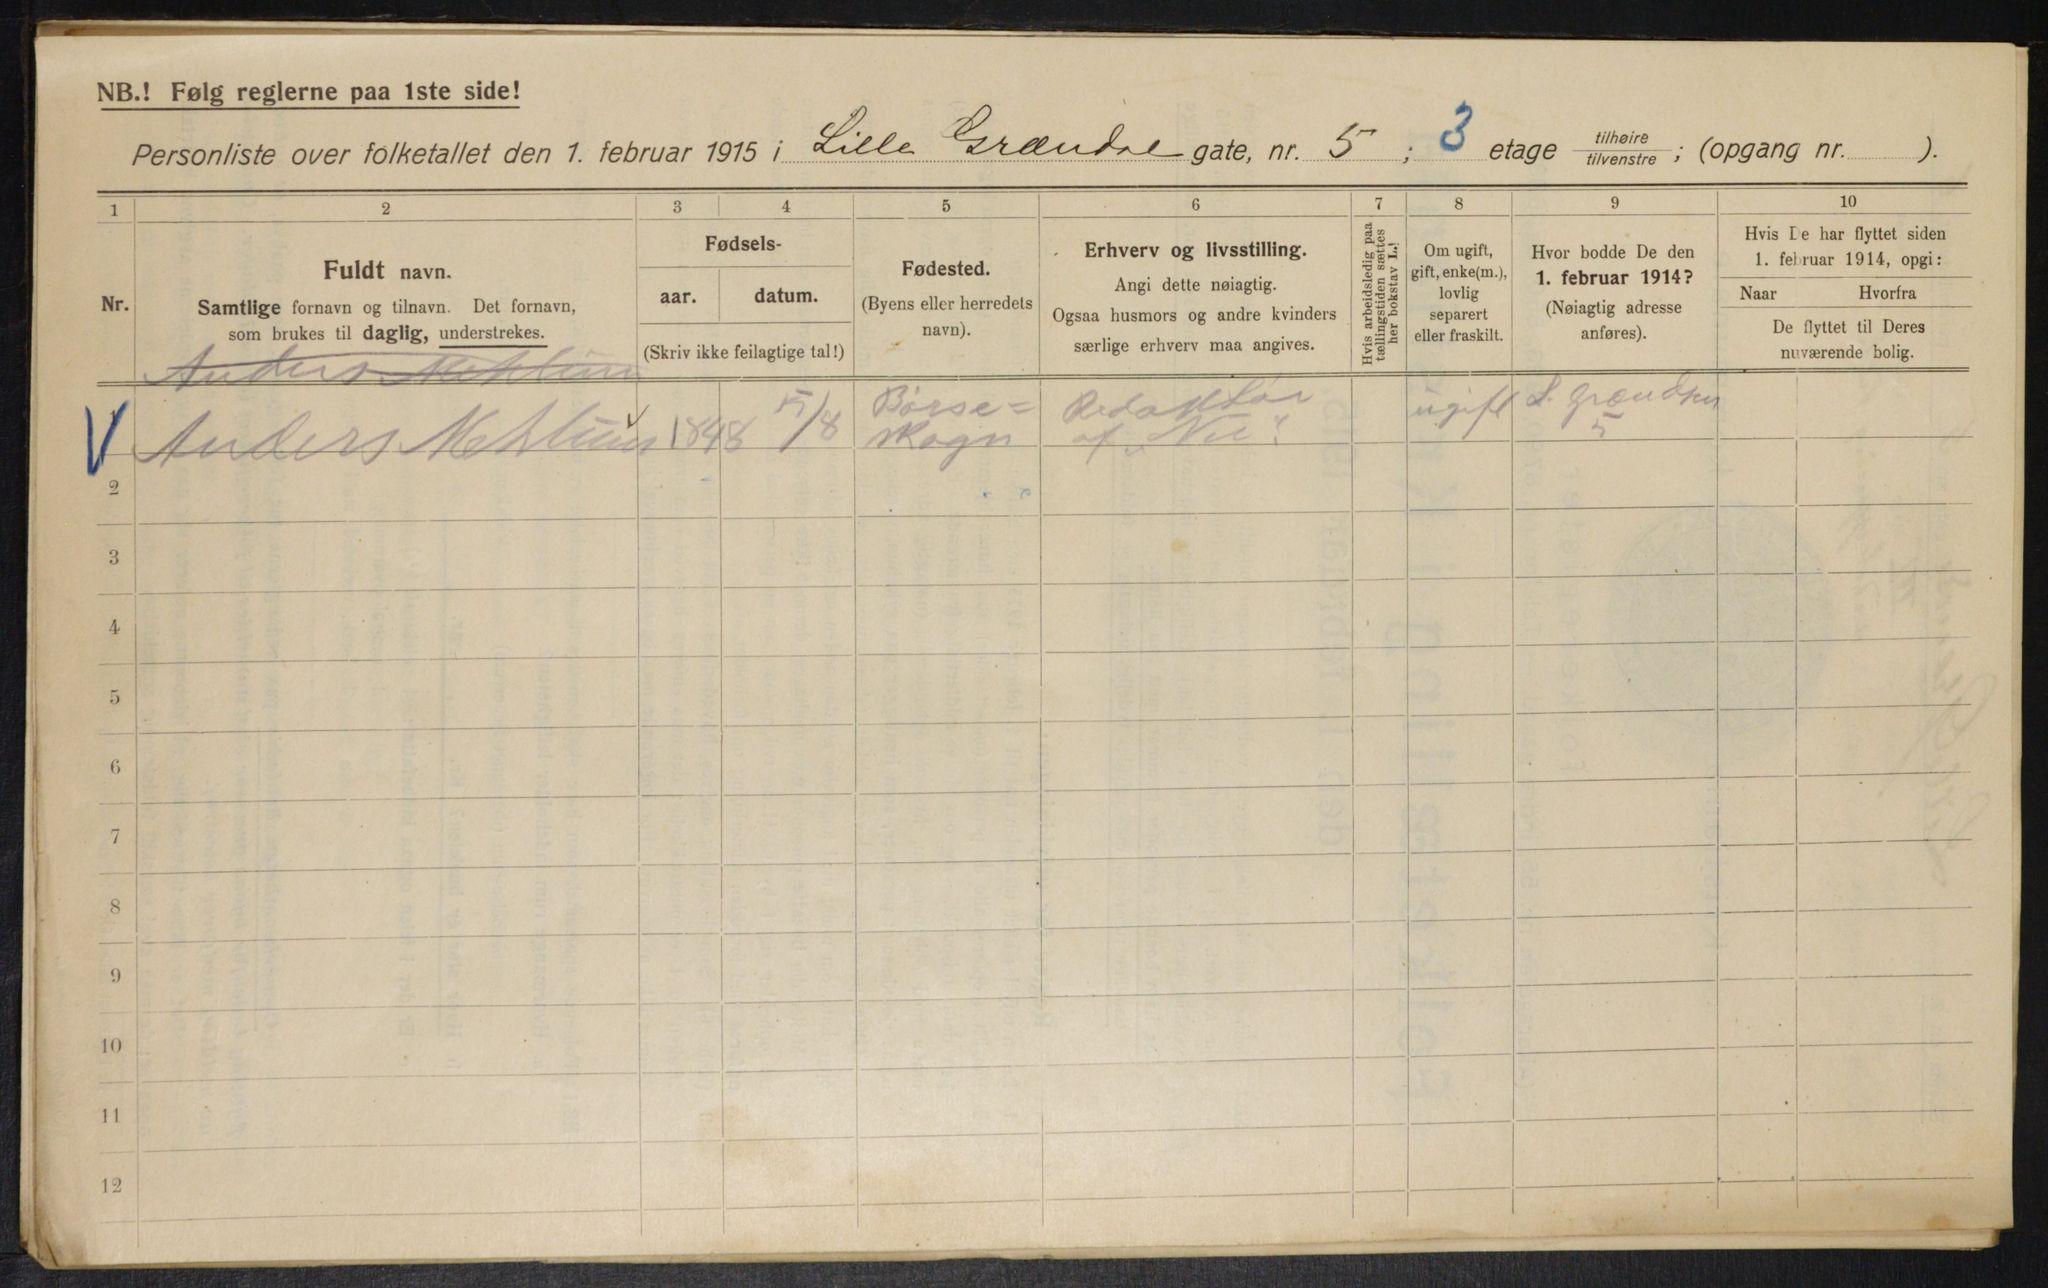 NB.! Følg reglerne paa 1ste side!
Personliste over folketallet den 1. februar 1915 i Lille Grændse gate, nr. 5 ; 3 etage tilhøire/tilvenstre ; (opgang nr. ).
1 2 3 4 5 6 7 8 9 10
Nr.
Fuldt navn.
Samtlige fornavn og tilnavn. Det fornavn,
som brukes til daglig, understrekes.
Fødsels-
aar. datum.
(Skriv ikke feilagtige tal!)
Fødested.
(Byens eller herredets
navn).
Erhverv og livsstilling.
Angi dette nøiagtig.
Ogsaa husmors og andre kvinders
særlige erhverv maa angives.
Hvis arbeidsledig paa
tællingstiden sættes
her bokstav L.!
Om ugift,
gift, enke(m.),
lovlig
separert
eller fraskilt.
Hvor bodde De den
1. februar 1914?
(Nøiagtig adresse
anføres).
Hvis De har flyttet siden
1. februar 1914, opgi:
Naar Hvorfra
De flyttet til Deres
nuværende bolig.
Anders Mehlum
V Anders Mehlum 1848 5/8 Børse=
skogn
Redaktør
af "Nu".
ugift L. Grændsen
5
2
3
4
5
6
7
8
9
10
11
12